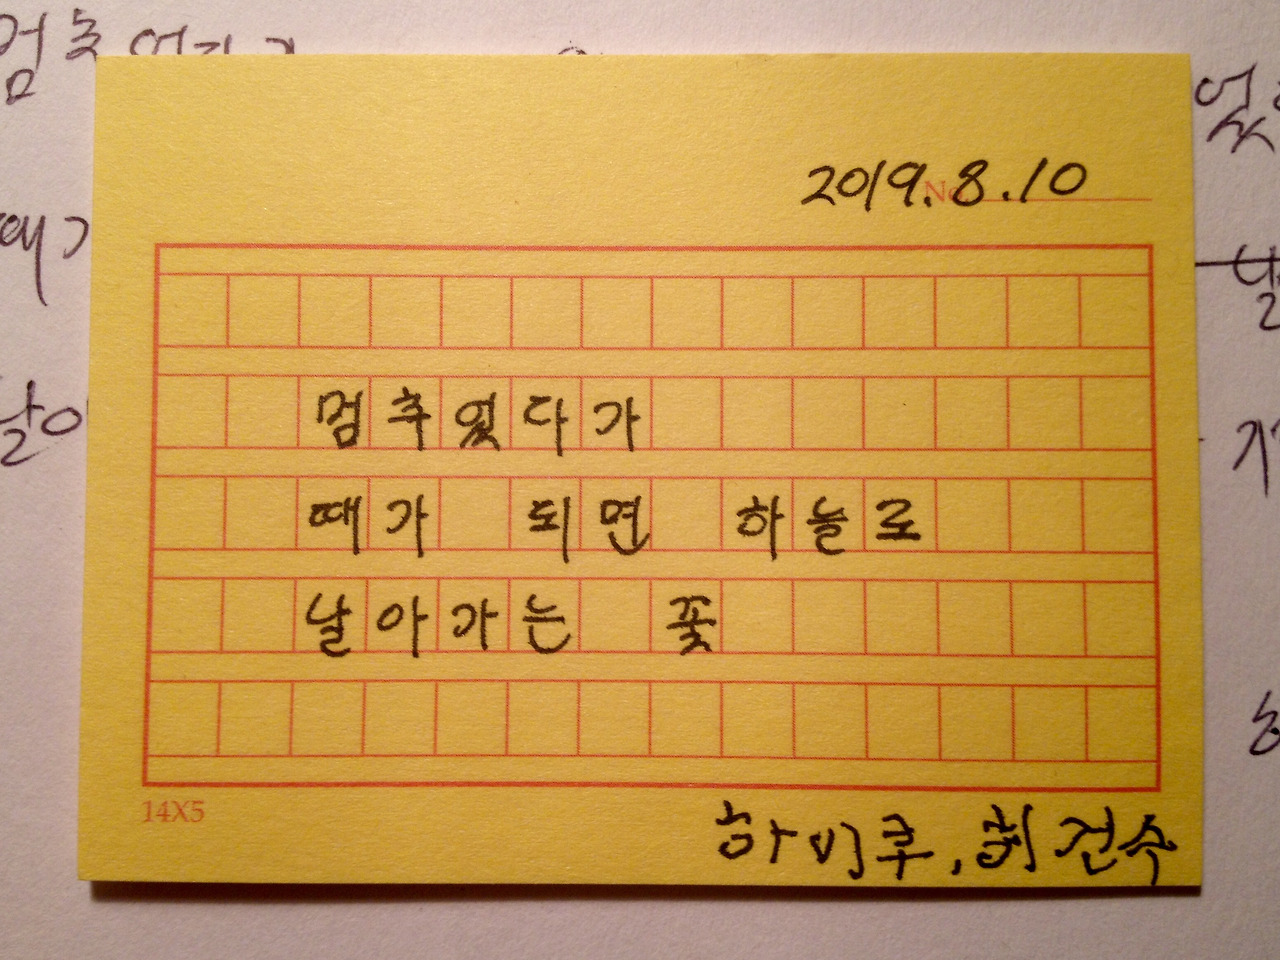 2019.8.10
No.
멈추었다가
때가 되면 하늘로
날아가는 꽃
14X5
하이쿠, 최건수